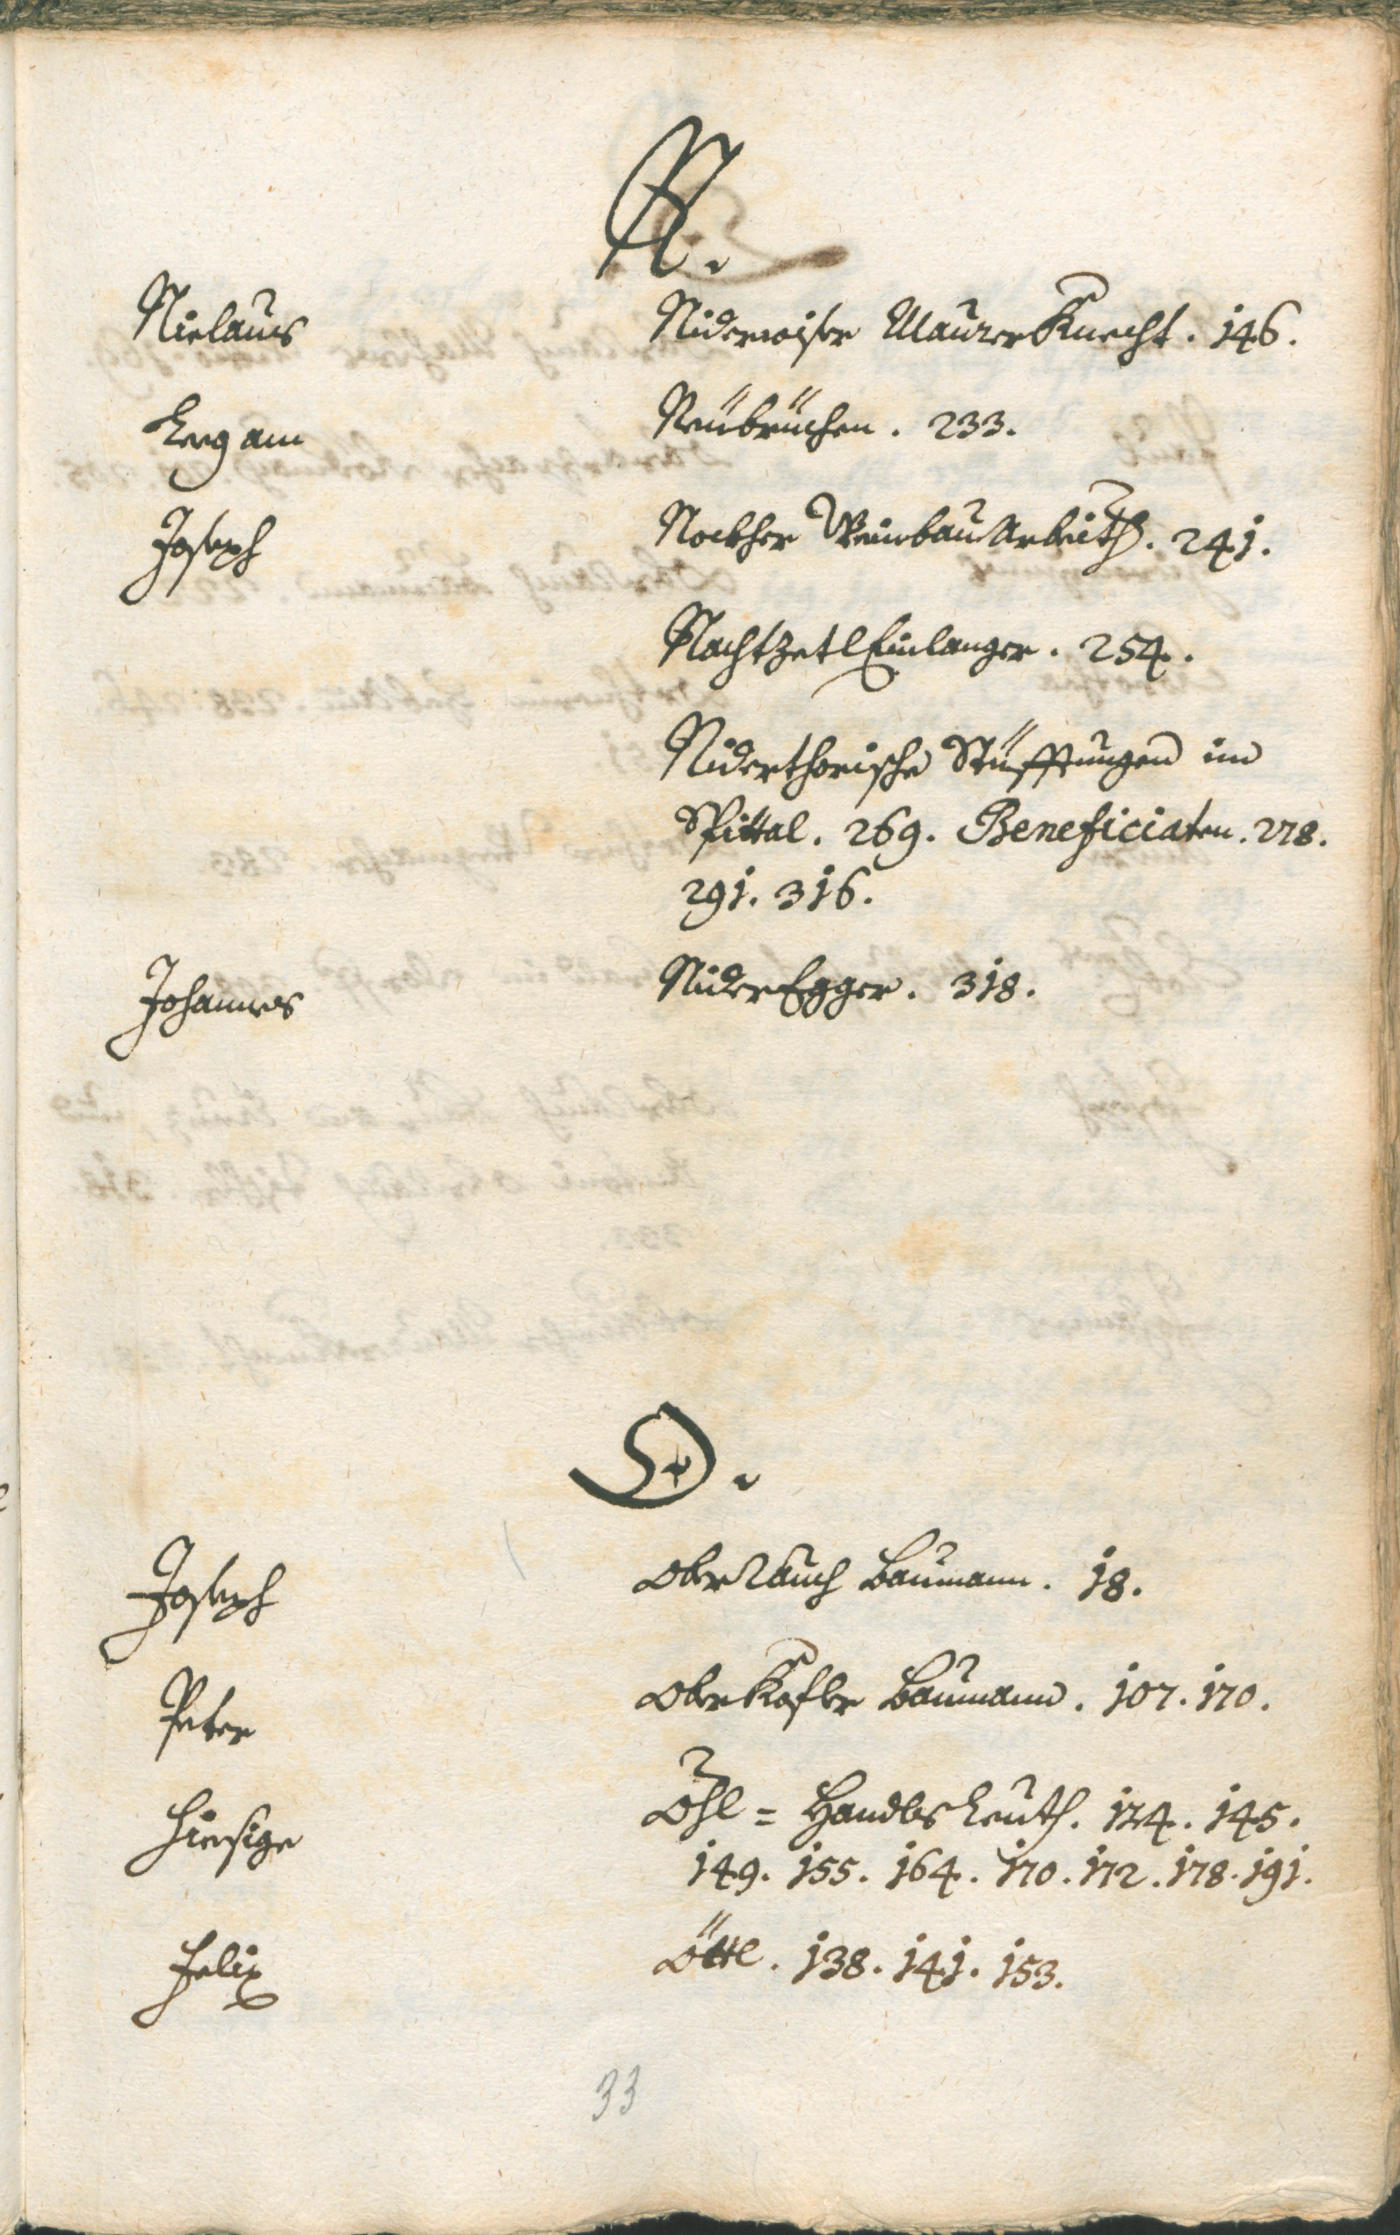 N.
Niclaus Niderwiser Maurer Knecht. 146.
Leegam Neübrüchen. 233.
Joseph Nockher Weinbau Arbeith. 241.
NachtzetlEinlanger. 254.
Niderthorische Stüfftungen im
Spittal. 269. Beneficiaten. 278.
291. 316.
Johannes NiderEgger. 318.
O.
Joseph oberrauch Baumann. 18.
Peter oberKofler Baumann. 107. 170.
hiesige öhl = Handls Leuth. 124. 145.
149. 155. 164. 170. 172. 178. 191.
Felix öttl. 138. 141. 153.
33